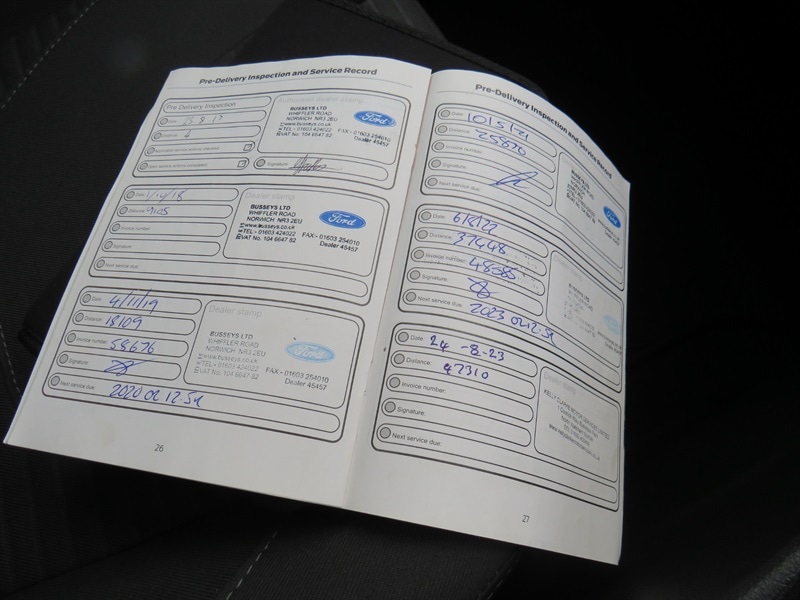 Pre-Delivery Inspection and Service Record
Pre Delivery Inspection
Date: 25.9.17
Signature:
Authorised dealer stamp
BUSSEYS LTD
WHIFFLER ROAD
NORWICH NR3 2EU
www.busseys.co.uk
TEL - 01603 424022 FAX - 01603 254010
VAT No. 104 6647 82 Dealer 45457
Ford
Date:
Distance: 9105
Invoice number:
Signature:
Next service due:
Dealer stamp
BUSSEYS LTD
WHIFFLER ROAD
NORWICH NR3 2EU
www.busseys.co.uk
TEL - 01603 424022 FAX - 01603 254010
VAT No. 104 6647 82 Dealer 45457
Ford
Date: 4/11/19
Distance: 18109
Invoice number: 58676
Signature:
Next service due: 2020 or 12.5k
Dealer stamp
BUSSEYS LTD
WHIFFLER ROAD
NORWICH NR3 2EU
www.busseys.co.uk
TEL - 01603 424022 FAX - 01603 254010
VAT No. 104 6647 82 Dealer 45457
Ford
26
Pre-Delivery Inspection and Service Record
Date: 10/5/21
Distance: 25870
Invoice number:
Signature:
Next service due:
Ford
Date:
Distance: 37448
Invoice number: 48585
Signature:
Next service due: 2023 or 12.5k
Date: 24-8-23
Distance: 47310
Invoice number:
Signature:
Next service due:
Dealer stamp
27